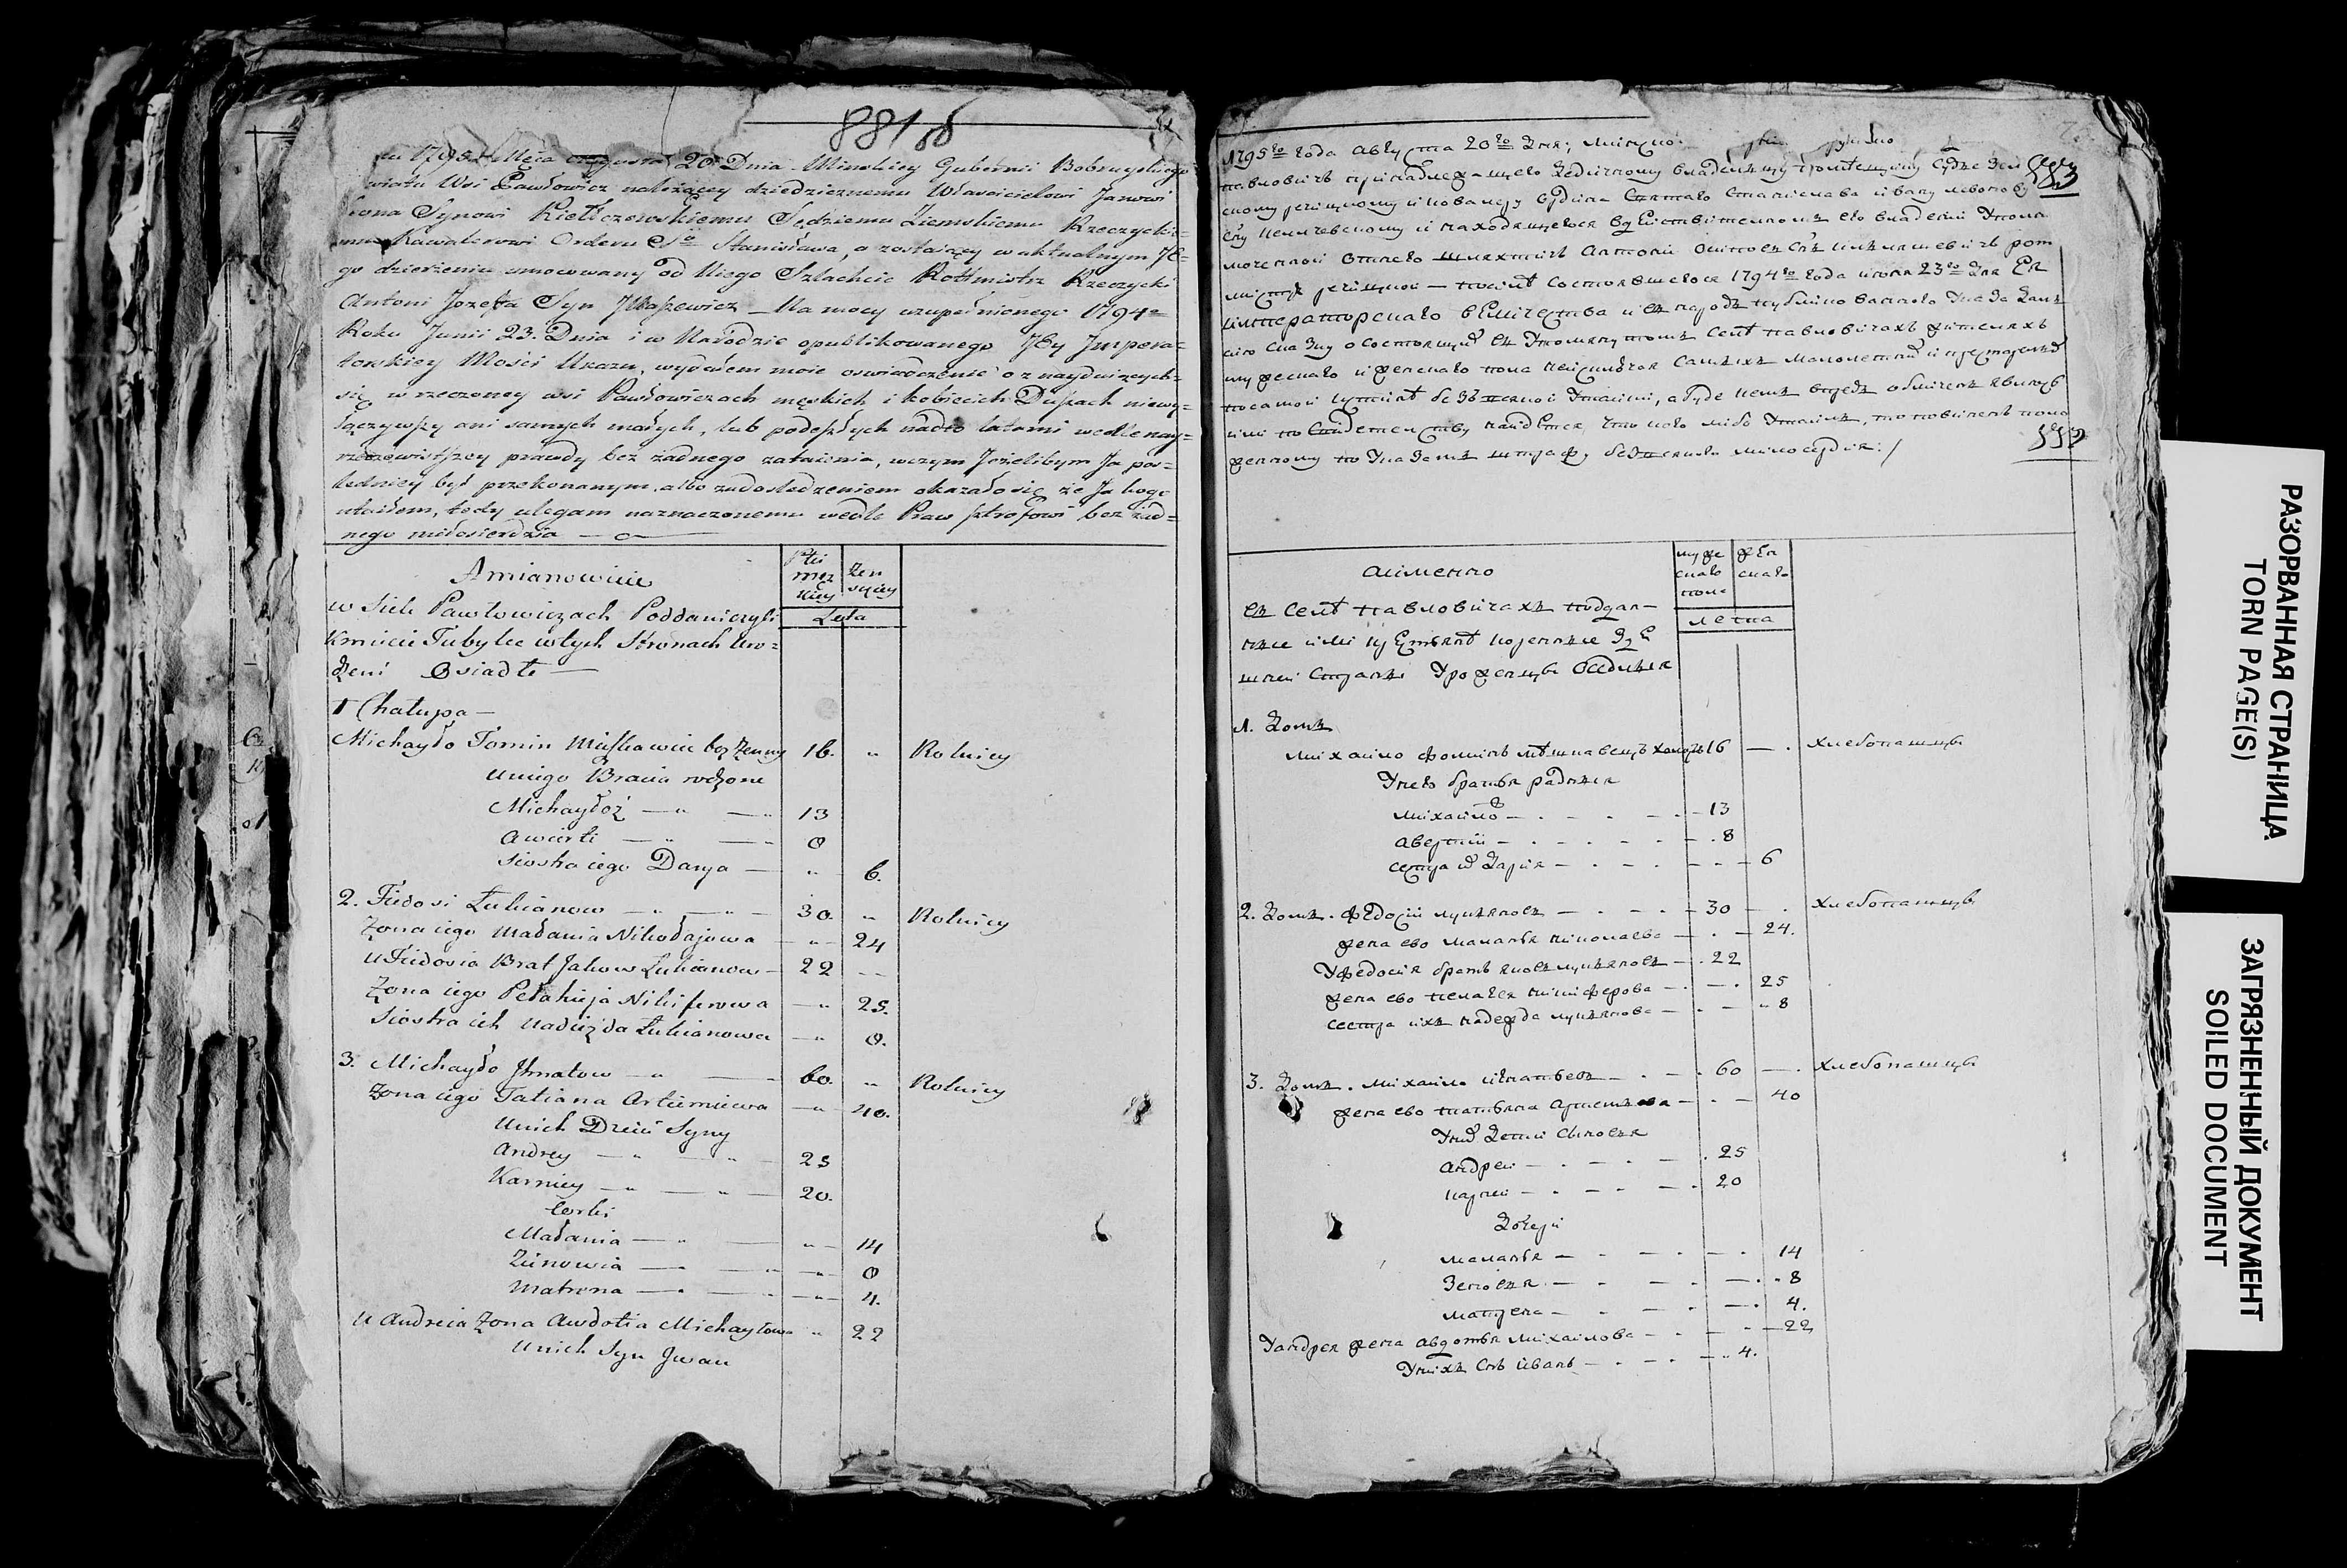 881 об
1795 Męca Augusta 20 Dnia Minskiey Gubernii Bobruyskiego
wiatu Wsi Pawłowicz należącey dziedzicznemu Właścicielowi Janowi
Leona Synowi Kiełczewskiemu Sędziemu Ziemskiemu Rzeczyckie=
mu Kawalerowi Orderu Sgo Stanisława, a zostaiącey w aktualnym Je=
go dzierżeniu umocowany od Niego Szlachcic Rotmistrz Rzeczycki
Antoni Jozefa Syn — Na mocy uzupełnionego 1794=
Roku Junii 23. Dnia i w Narodzie opublikowanego Jey Impera=
torskiey Mości Ukazu, wydałem moie oswiadczenie o znayduiących=
się w rzeczoney wsi Pawłowiczach męskich i kobiecich Duszach niewy=
łączywszy ani samych małych, lub podeszłych nadto latami wedle nay=
rzeczewistszey prawdy bez żadnego zataienia, w czym Jeżelibym Ja pos=
ledniey był przekonanym, albo zadosledzeniem okazało się że Ja kogo
utaiłem, tedy ulegam naznaczonemu wedle Praw sztrofowi bez żad=
nego miłosierdzia
Amianowicie
Płci męz kiey
Żen skiey
w Siele Pawłowiczach Poddani czyli
Lata
Kmiecie Tubylce w tych Stronach Uro=
dzeni Osiadłe —
1 Chałupa —
Michayło Fomin Miszkawiec bez Żenny 16. „ Rolnicy
Uniego Bracia rodzone
Michayłoż 13
Awierki 8
Siostra iego Darya — „ 6.
2. Fiedosi Łukianow 30. „ Rolnicy
Żona iego Małania Nikołajowa 24
U Fiedosia Brat Jakow Łukianow 22
Żona iego Pełahieja Nikiferowa 25.
Siostra ich Nadieżda Łukianowa 8.
3. Michayło Jhnatow 60. „ Rolnicy
Żona iego Tatiana Artiemiewa 40.
Unich Dzieci Syny
Andrey 25
Karniey 20.
Corki
Małania 14
Zienowia 8
Matrona 4.
U Andreia Żona Awdotia Michayłowa „ 22
Unich Syn Jwan
1795го года августа 20го дня, минской
павловичъ принадлеж—щего
скому речицкому и кавалеру ордина святаго станислава ивану леонову
сну келчевскому и находящегося в действительномъ его владении уполно
моченной от него шляхтичь антони осиповъ снъ ротъ
мистръ речицкой — посилѣ состоявшегося 1794го года июня 23го дня ея
императорскаго величества и въ народъ публикованного указа даю
сию сказку о состоящих въ упомянутомъ селѣ павловичахъ жителяхъ
мужеска и женскаго пола неисключая самыхъ малолетних и престарелых
по самой сущей безъ всякой утайки, а буде кемъ впредь обличенъ явлюсь
или по свидетелству найдется, что кого либо утаилъ, то повиненъ поло
женному по указамъ штрафу безъ всякого милосердия:/
553
552
а именно
муже скаго пола
жен скаго
лета
въ селѣ павловичахъ поддан—
ные или крестьянѣ коренные зде
шней страны уроженцы оседлыя
1. домъ
михайло фоминъ холостъ 16 — хлебопашцы
у него братья радныя
михайло 13
аверкий 8
сестра их дария 6
2. домъ. федосий лукьяновъ 30 — хлебопашцы
жена ево маланья николаева 24.
у федосия братъ яковъ лукьяновъ 22
жена ево пелагея никиферова 25
сестра ихъ надежда лукьянова 8
3. домъ. михайло игнатьевъ 60 — хлебопашцы
жена ево татьяна артемьева 40
у них дети сыновья
андрей 25
карней 20
дочери
маланья 14
зеновья 8
матрена 4.
у андрея жена авдотья михайлова 22
у нихъ снъ иванъ 4.
РАЗОРВАННАЯ СТРАНИЦА
TORN PAGE(S)
ЗАГРЯЗНЕННЫЙ ДОКУМЕНТ
SOILED DOCUMENT